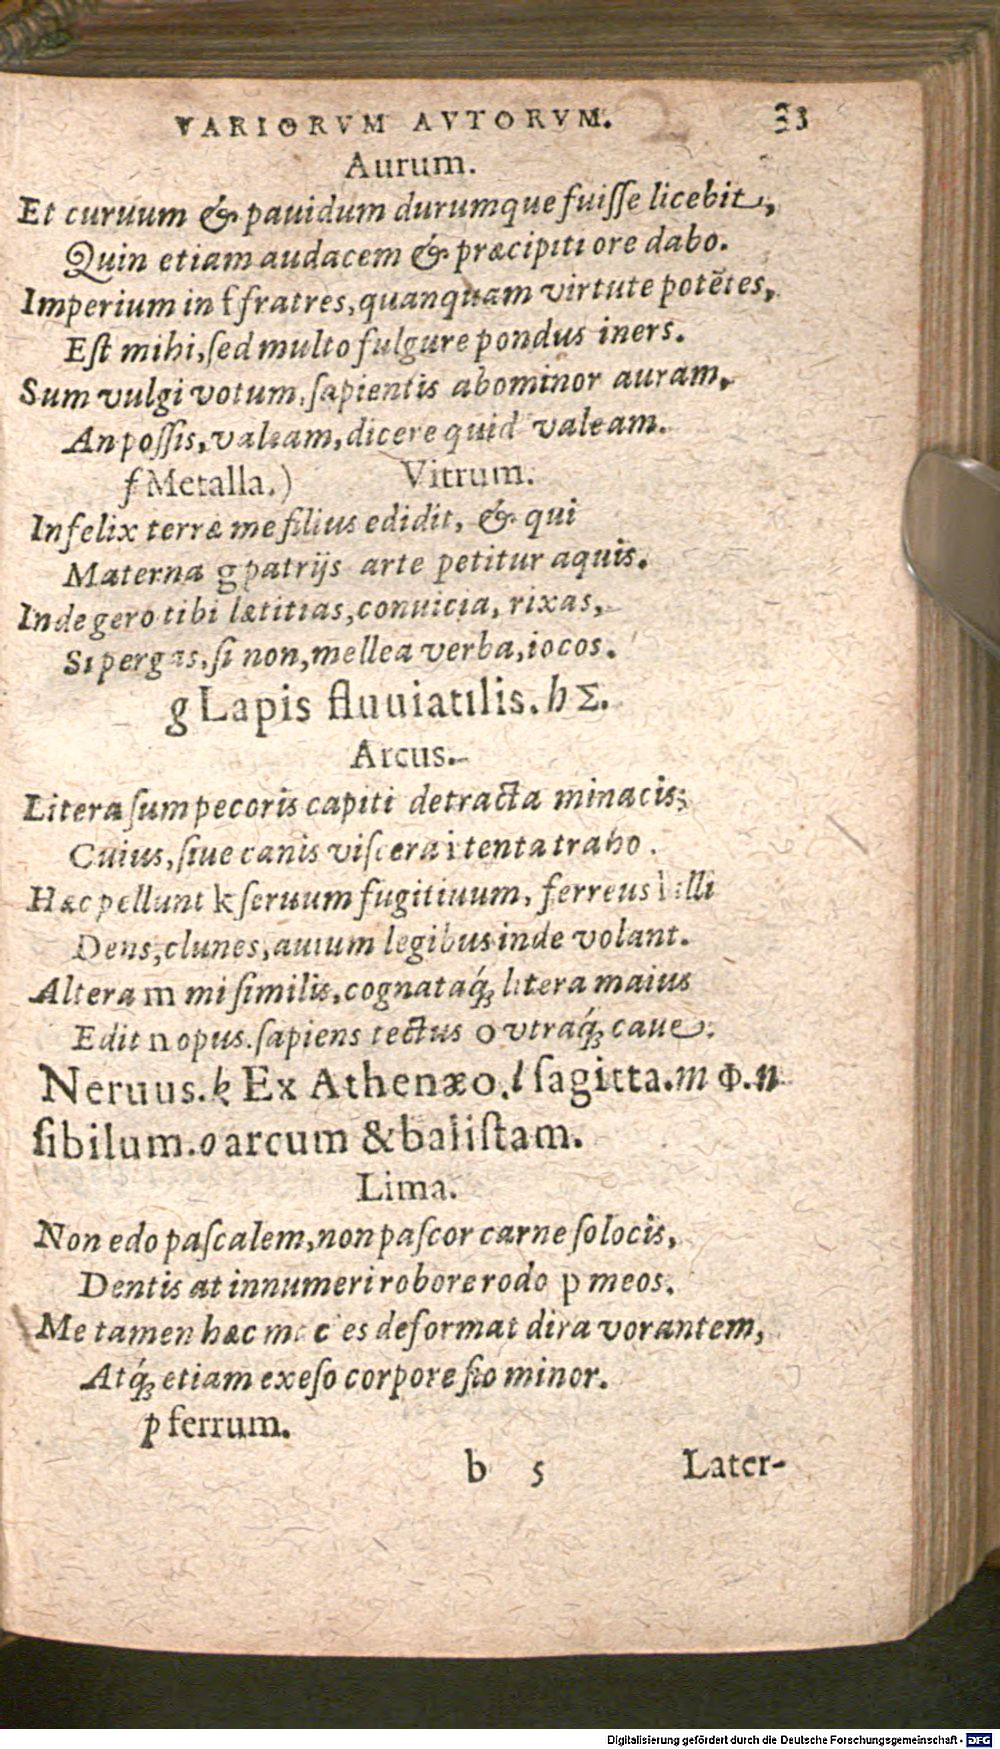 VARIORVM AVTORVM. 33
Aurum.
Et curuum & pauidum durumque fuiſſe licebit,
Quin etiam audacem & præcipiti ore dabo.
Imperium in f fratres, quanquam virtute potẽtes,
Eſt mihi, ſed multo fulgure pondus iners.
Sum vulgi votum, ſapientis abominor auram,
An poſſis, valeam, dicere quid valeam.
f Metalla.) Vitrum.
Infelix terræ me filius edidit, & qui
Materna g patrijs arte petitur aquis.
Inde gero tibi lætitias, conuicia, rixas,
Si pergas, ſi non, mellea verba, iocos.
g Lapis fluuiatilis. h Σ.
Arcus.
Litera ſum pecoris capiti detracta minacis;
Cuius, ſiue canis viſcera i tenta traho.
Hæc pellunt k ſeruum fugitiuum, ferreus illi
Dens, clunes, auium legibus inde volant.
Altera m mi ſimilis, cognataq́; litera maius
Edit n opus. ſapiens tectus o vtraq́; caue.
Neruus. k Ex Athenæo. l ſagitta. m Φ. n
ſibilum. o arcum & baliſtam.
Lima.
Non edo paſcalem, non paſcor carne ſolocis,
Dentis at innumeri robore rodo p meos.
Me tamen hæc macies deformat dira vorantem,
Atq́; etiam exeſo corpore fio minor.
p ferrum.
b 5 Later-
Digitalisierung gefördert durch die Deutsche Forschungsgemeinschaft - DFG